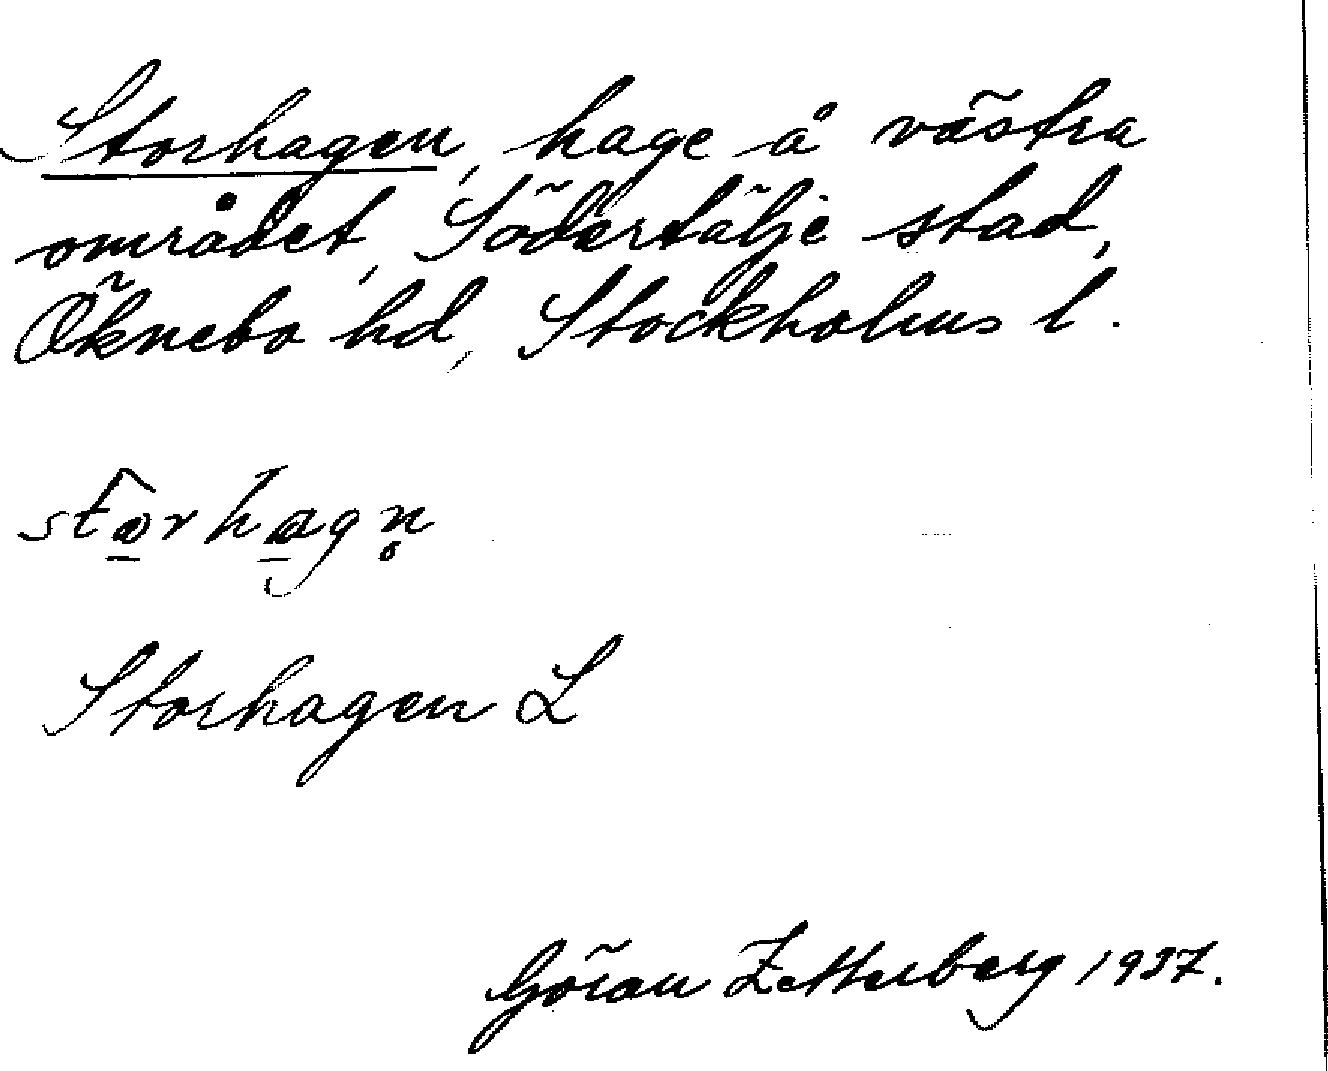 Storhagen, hage å västra
området, Södertälje stad,
Öknebo hd, Stockholms l.
storhagn̥
Storhagen L
Göran Zetterberg 1937.